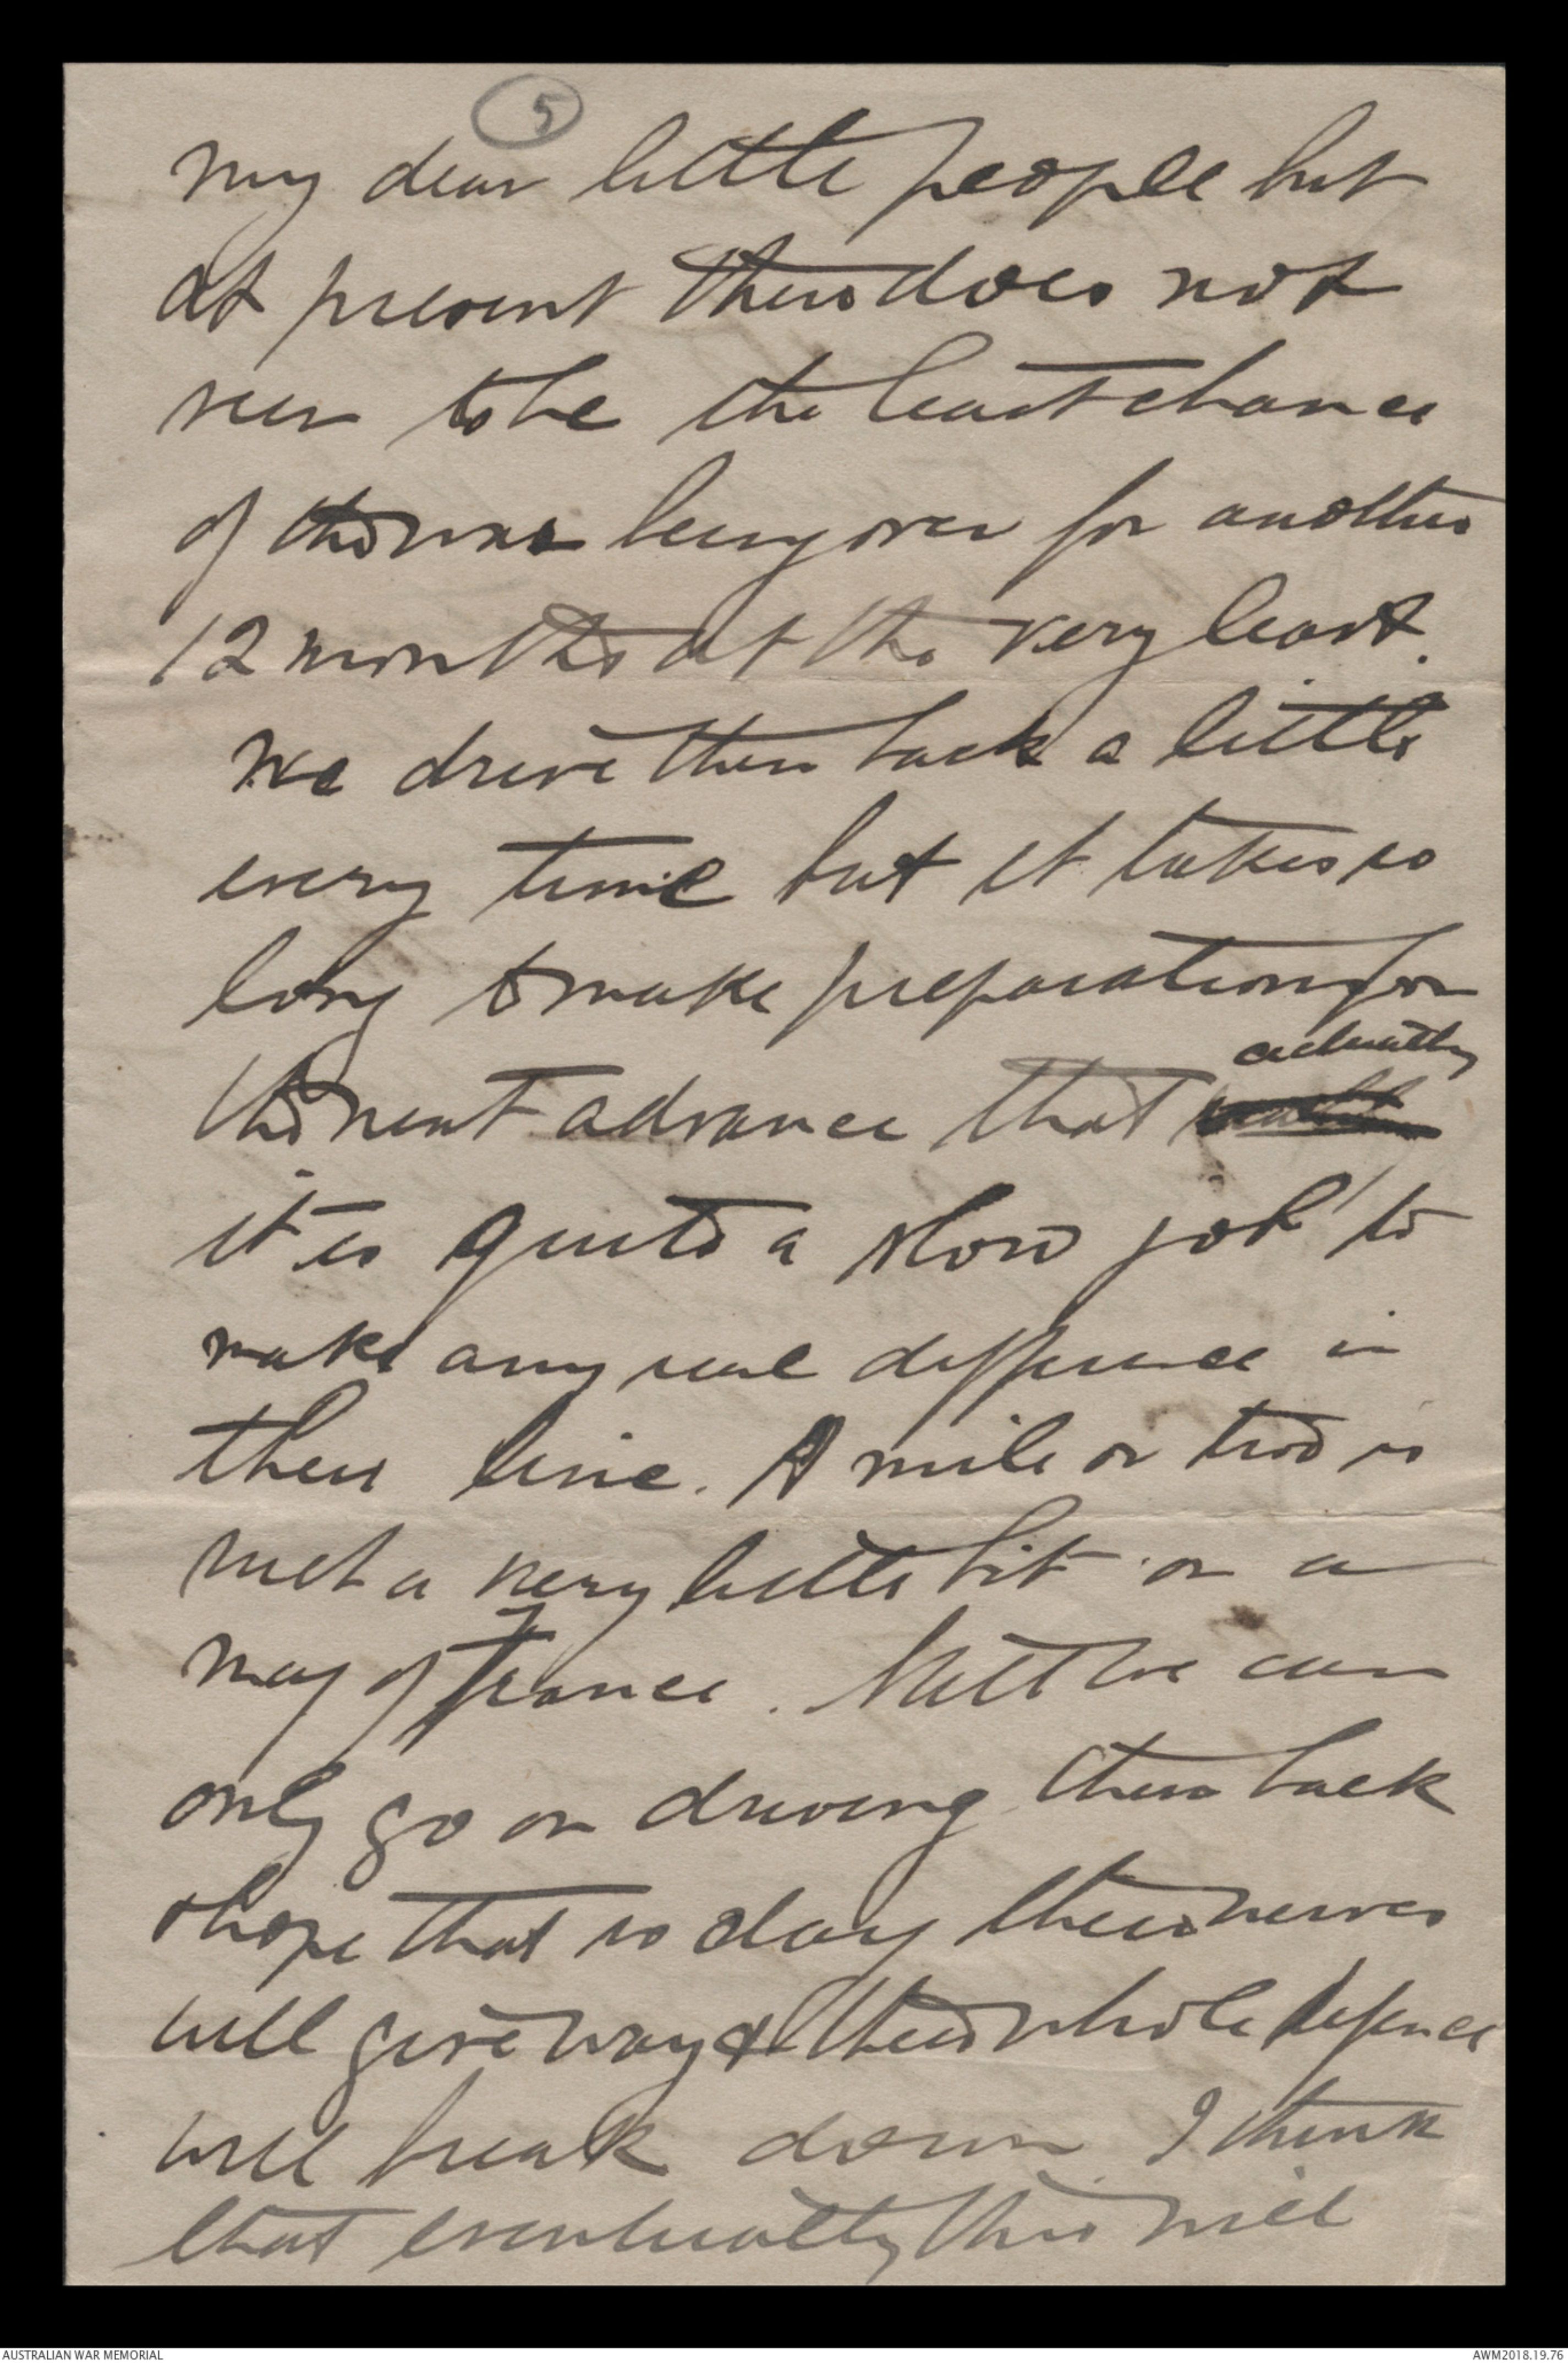 5
my dear little people but
at present there does not
seem to be the least chance
of the war being over for another
12 months at the very least.
We drive them back a little
every time but it takes so
long to make preparation for
the next advance that actually
it is quite a slow job to
make any real difference in
their line. A mile or two is
such a very little bit on a
map of France. Still we can
only go on driving them back
& hope that so day their nerves
will give way & their whole defence
will break down. I think
that eventually this will
AUSTRALIAN WAR MEMORIAL
AWM2018.19.76